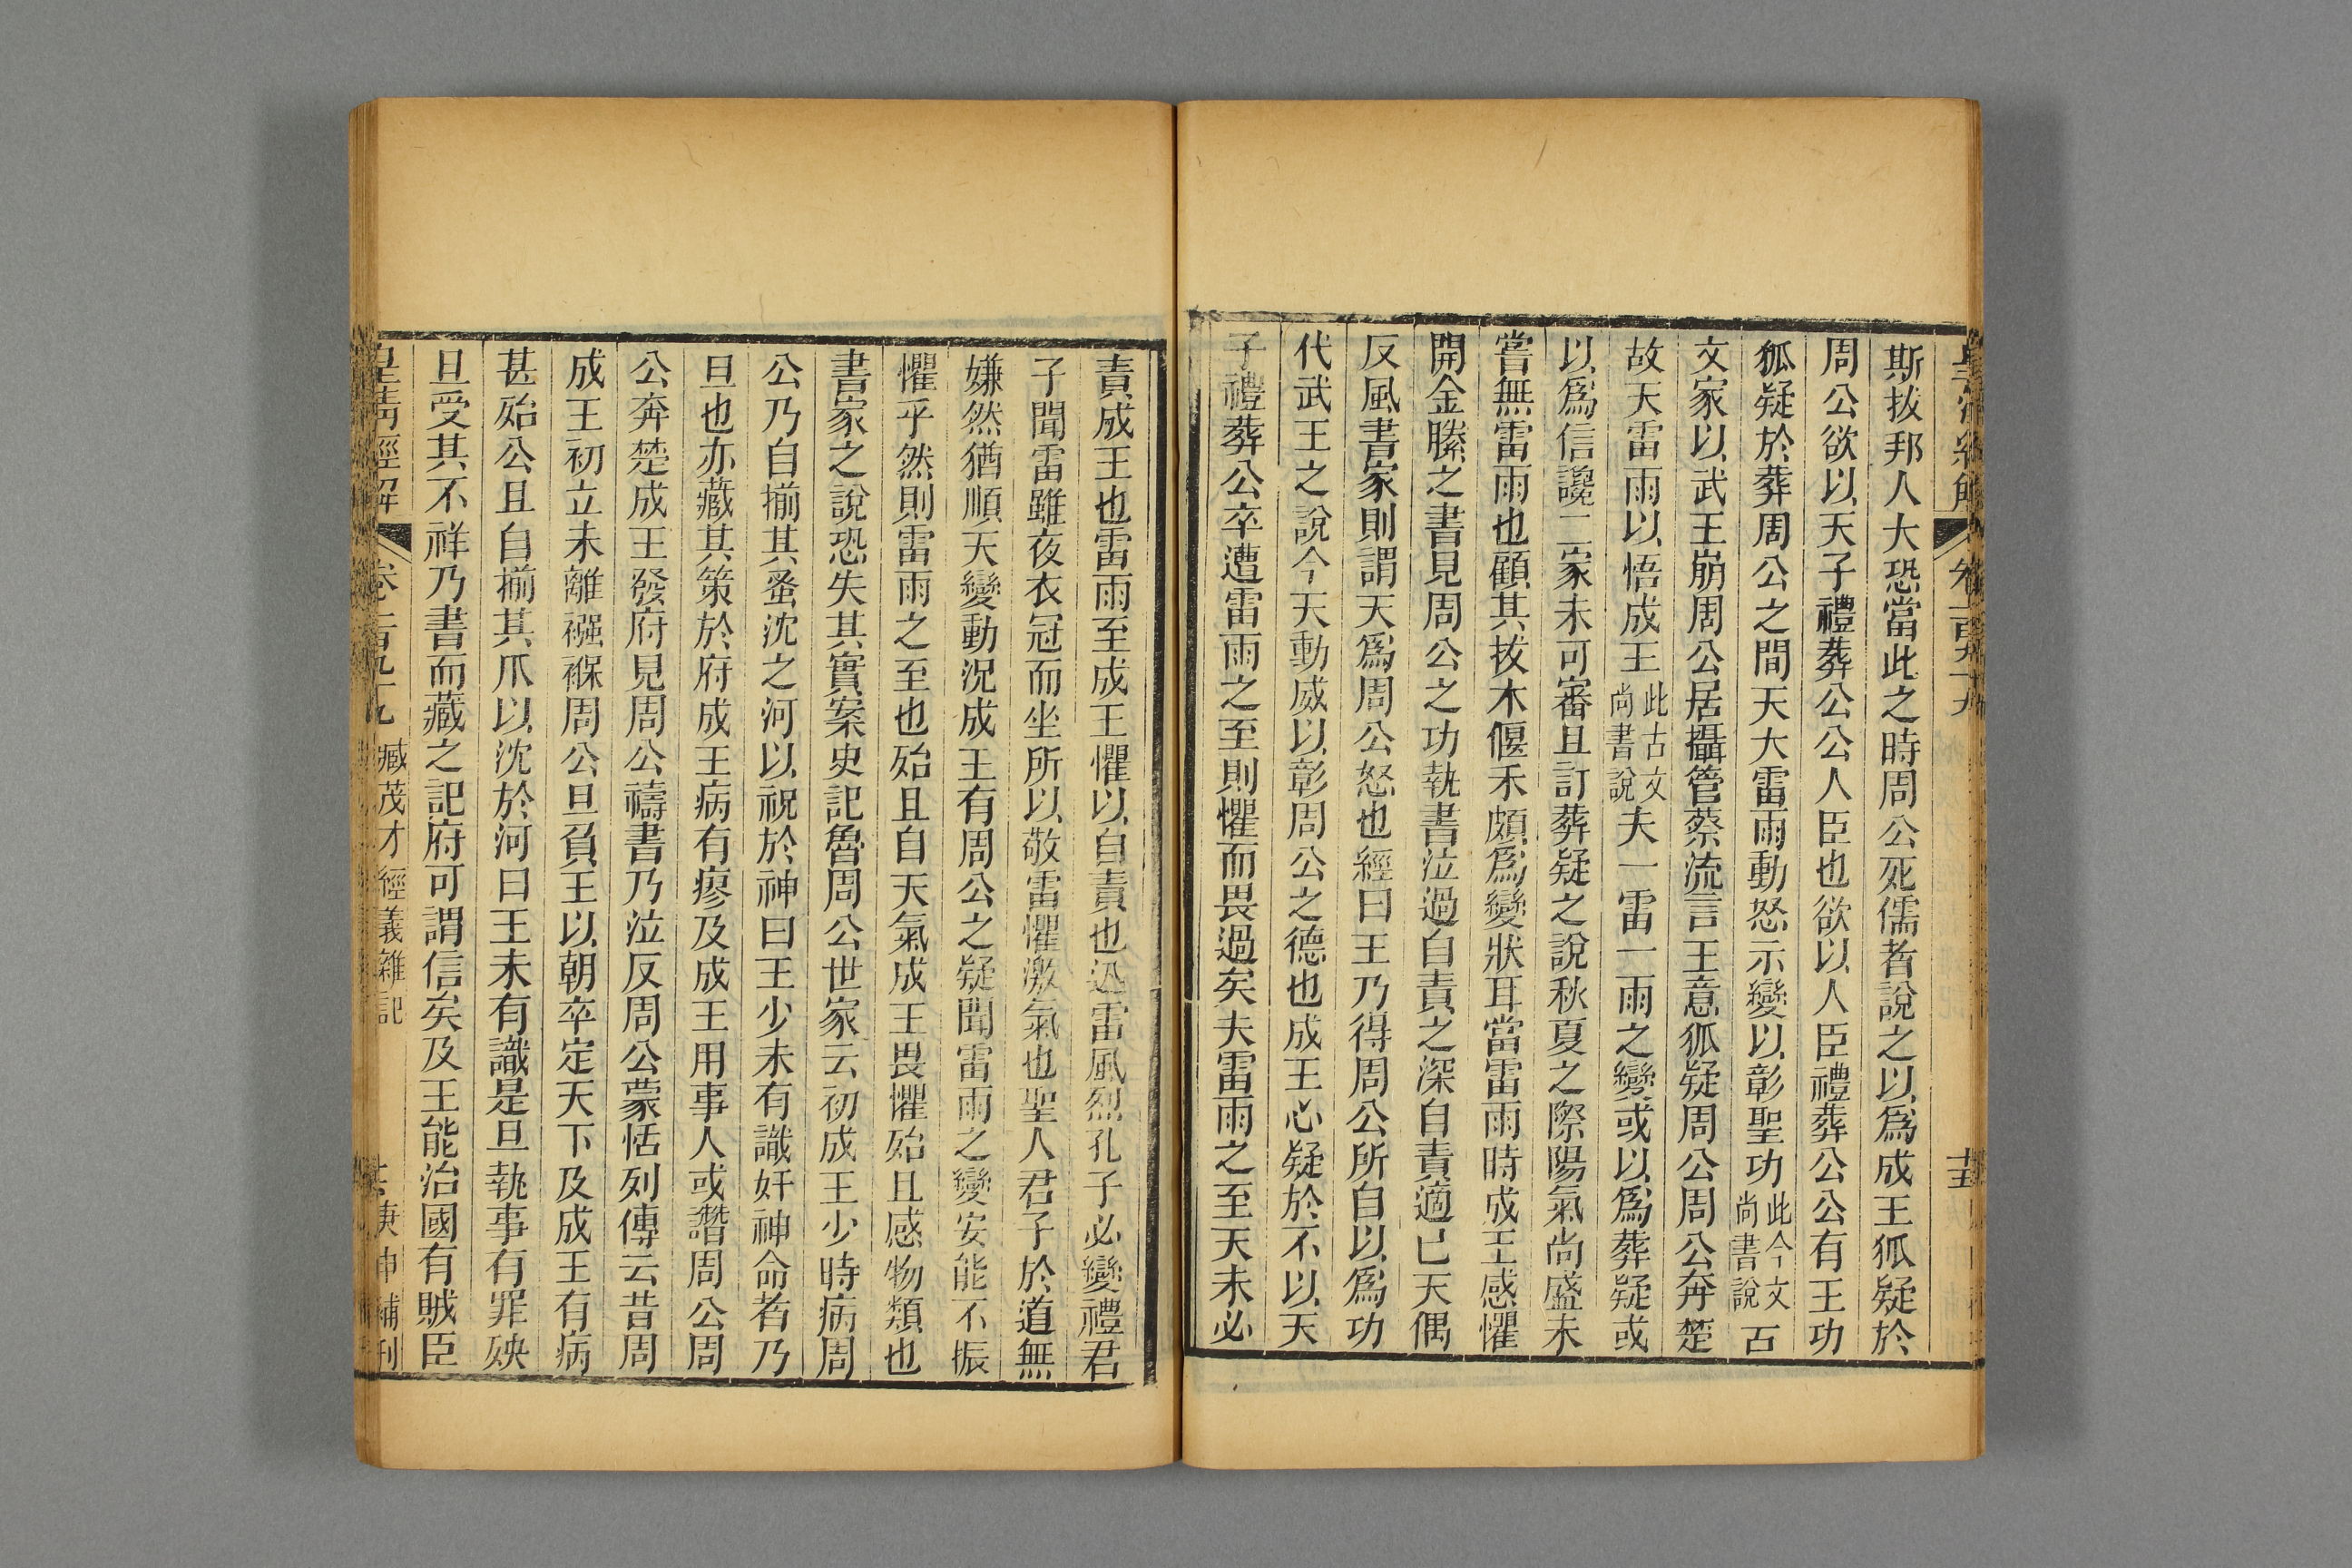 皇清經解 卷一百九十九 十五
斯拔邦人大恐當此之時周公死儒者說之以爲成王狐疑於
周公欲以天子禮葬公公人臣也欲以人臣禮葬公公有王功
狐疑於葬周公之間天大雷雨動怒示變以彰聖功此今文尚書說古
文家以武王崩周公居攝管蔡流言王意狐疑周公周公奔楚
故天雷雨以悟成王此古文尚書說夫一雷一雨之變或以爲葬疑或
以爲信讒二家未可審且訂葬疑之說秋夏之際陽氣尚盛未
嘗無雷雨也顧其拔木偃禾頗爲變狀耳當雷雨時成王感懼
開金縢之書見周公之功執書泣過自責之深自責適已天偶
反風書家則謂天爲周公怒也經曰王乃得周公所自以爲功
代武王之說今天動威以彰周公之德也成王心疑於不以天
子禮葬公卒遭雷雨之至則懼而畏過矣夫雷雨之至天未必
責成王也雷雨至成王懼以自責也迅雷風烈孔子必變禮君
子聞雷雖夜衣冠而坐所以敬雷懼激氣也聖人君子於道無
嫌然猶順天變動況成王有周公之疑聞雷雨之變安能不振
懼乎然則雷雨之至也殆且自天氣成王畏懼殆且感物類也
書家之說恐失其實案史記魯周公世家云初成王少時病周
公乃自揃其蚤沈之河以祝於神曰王少未有識奸神命者乃
旦也亦藏其策於府成王病有瘳及成王用事人或譖周公周
公奔楚成王發府見周公禱書乃泣反周公蒙恬列傳云昔周
成王初立未離襁褓周公旦負王以朝卒定天下及成王有病
甚殆公旦自揃其爪以沈於河曰王未有識是旦執事有罪殃
旦受其不祥乃書而藏之記府可謂信矣及王能治國有賊臣
皇清經解 卷一百九十九 臧茂才經義雜記 共 庚申補刊